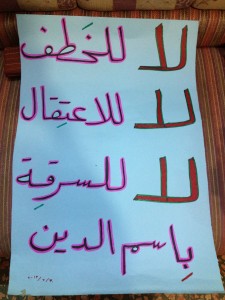 لا للخَطف
لا للاعتِقال
لا للسرقِة
بِاسم الدين